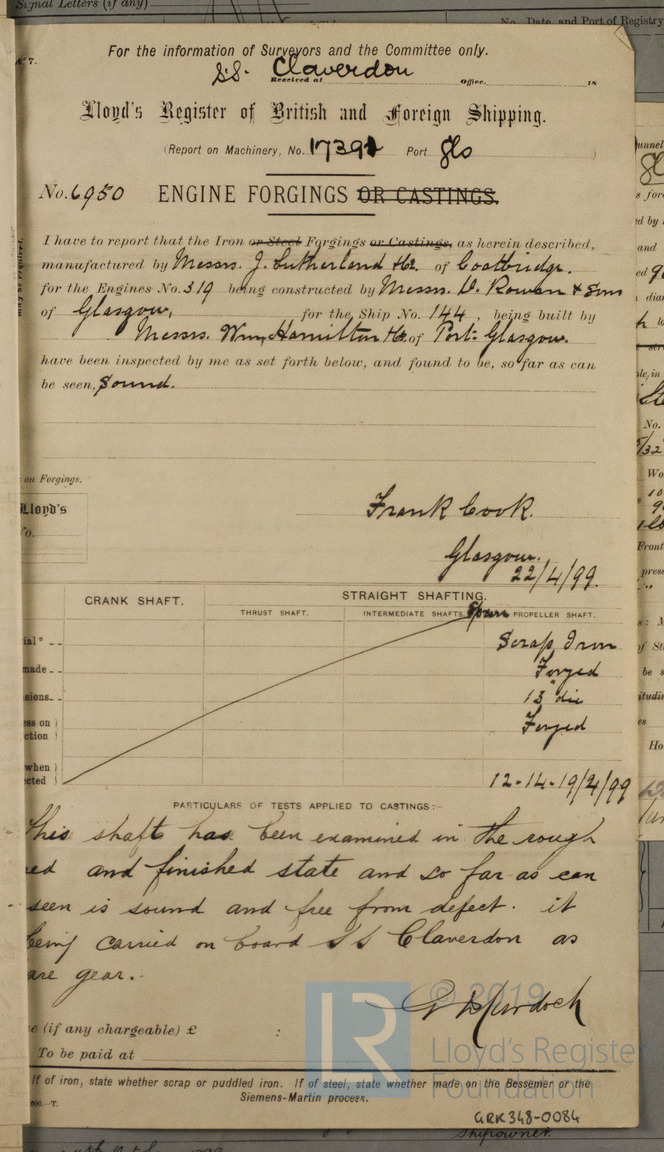 Signal Letters (if any)
No. Date, and Port of Registry
For the information of Surveyors and the Committee only.
S.S. Claverdon
Received at Office. 18
Lloyd's Register of British and Foreign Shipping.
(Report on Machinery, No. 17391 Port Gls )
No. 6950 ENGINE FORGINGS OR CASTINGS.
I have to report that the Iron or Steel Forgings or Castings, as herein described,
manufactured by Messrs. J. Sutherland & Co. of Coatbridge.
for the Engines No. 319 being constructed by Messrs. D. Rowan & Sons
of Glasgow, for the Ship No. 144, being built by
Messrs. Wm. Hamilton & Co. of Port-Glasgow.
have been inspected by me as set forth below, and found to be, so far as can
be seen, Sound.
on Forgings.
Lloyd's
Frank Cook.
Glasgow.
22/4/99.
CRANK SHAFT. STRAIGHT SHAFTING.
THRUST SHAFT. INTERMEDIATE SHAFTS. Spare PROPELLER SHAFT.
ial* Scrap Iron
made Forged
sions 13" dia
ss on
ction Forged
when
cted 12-14-19/4/99
PARTICULARS OF TESTS APPLIED TO CASTINGS:-
This shaft has been examined in the rough
ed and finished state and so far as can
seen is sound and free from defect. it
being carried on board SS Claverdon as
are gear.
G Murdoch
e (if any chargeable) £ :
To be paid at
If of iron, state whether scrap or puddled iron. If of steel, state whether made on the Bessemer or the
Siemens-Martin process.
© 2019
LR
Lloyd's Register
Foundation
GRK348-0084
shipowner.